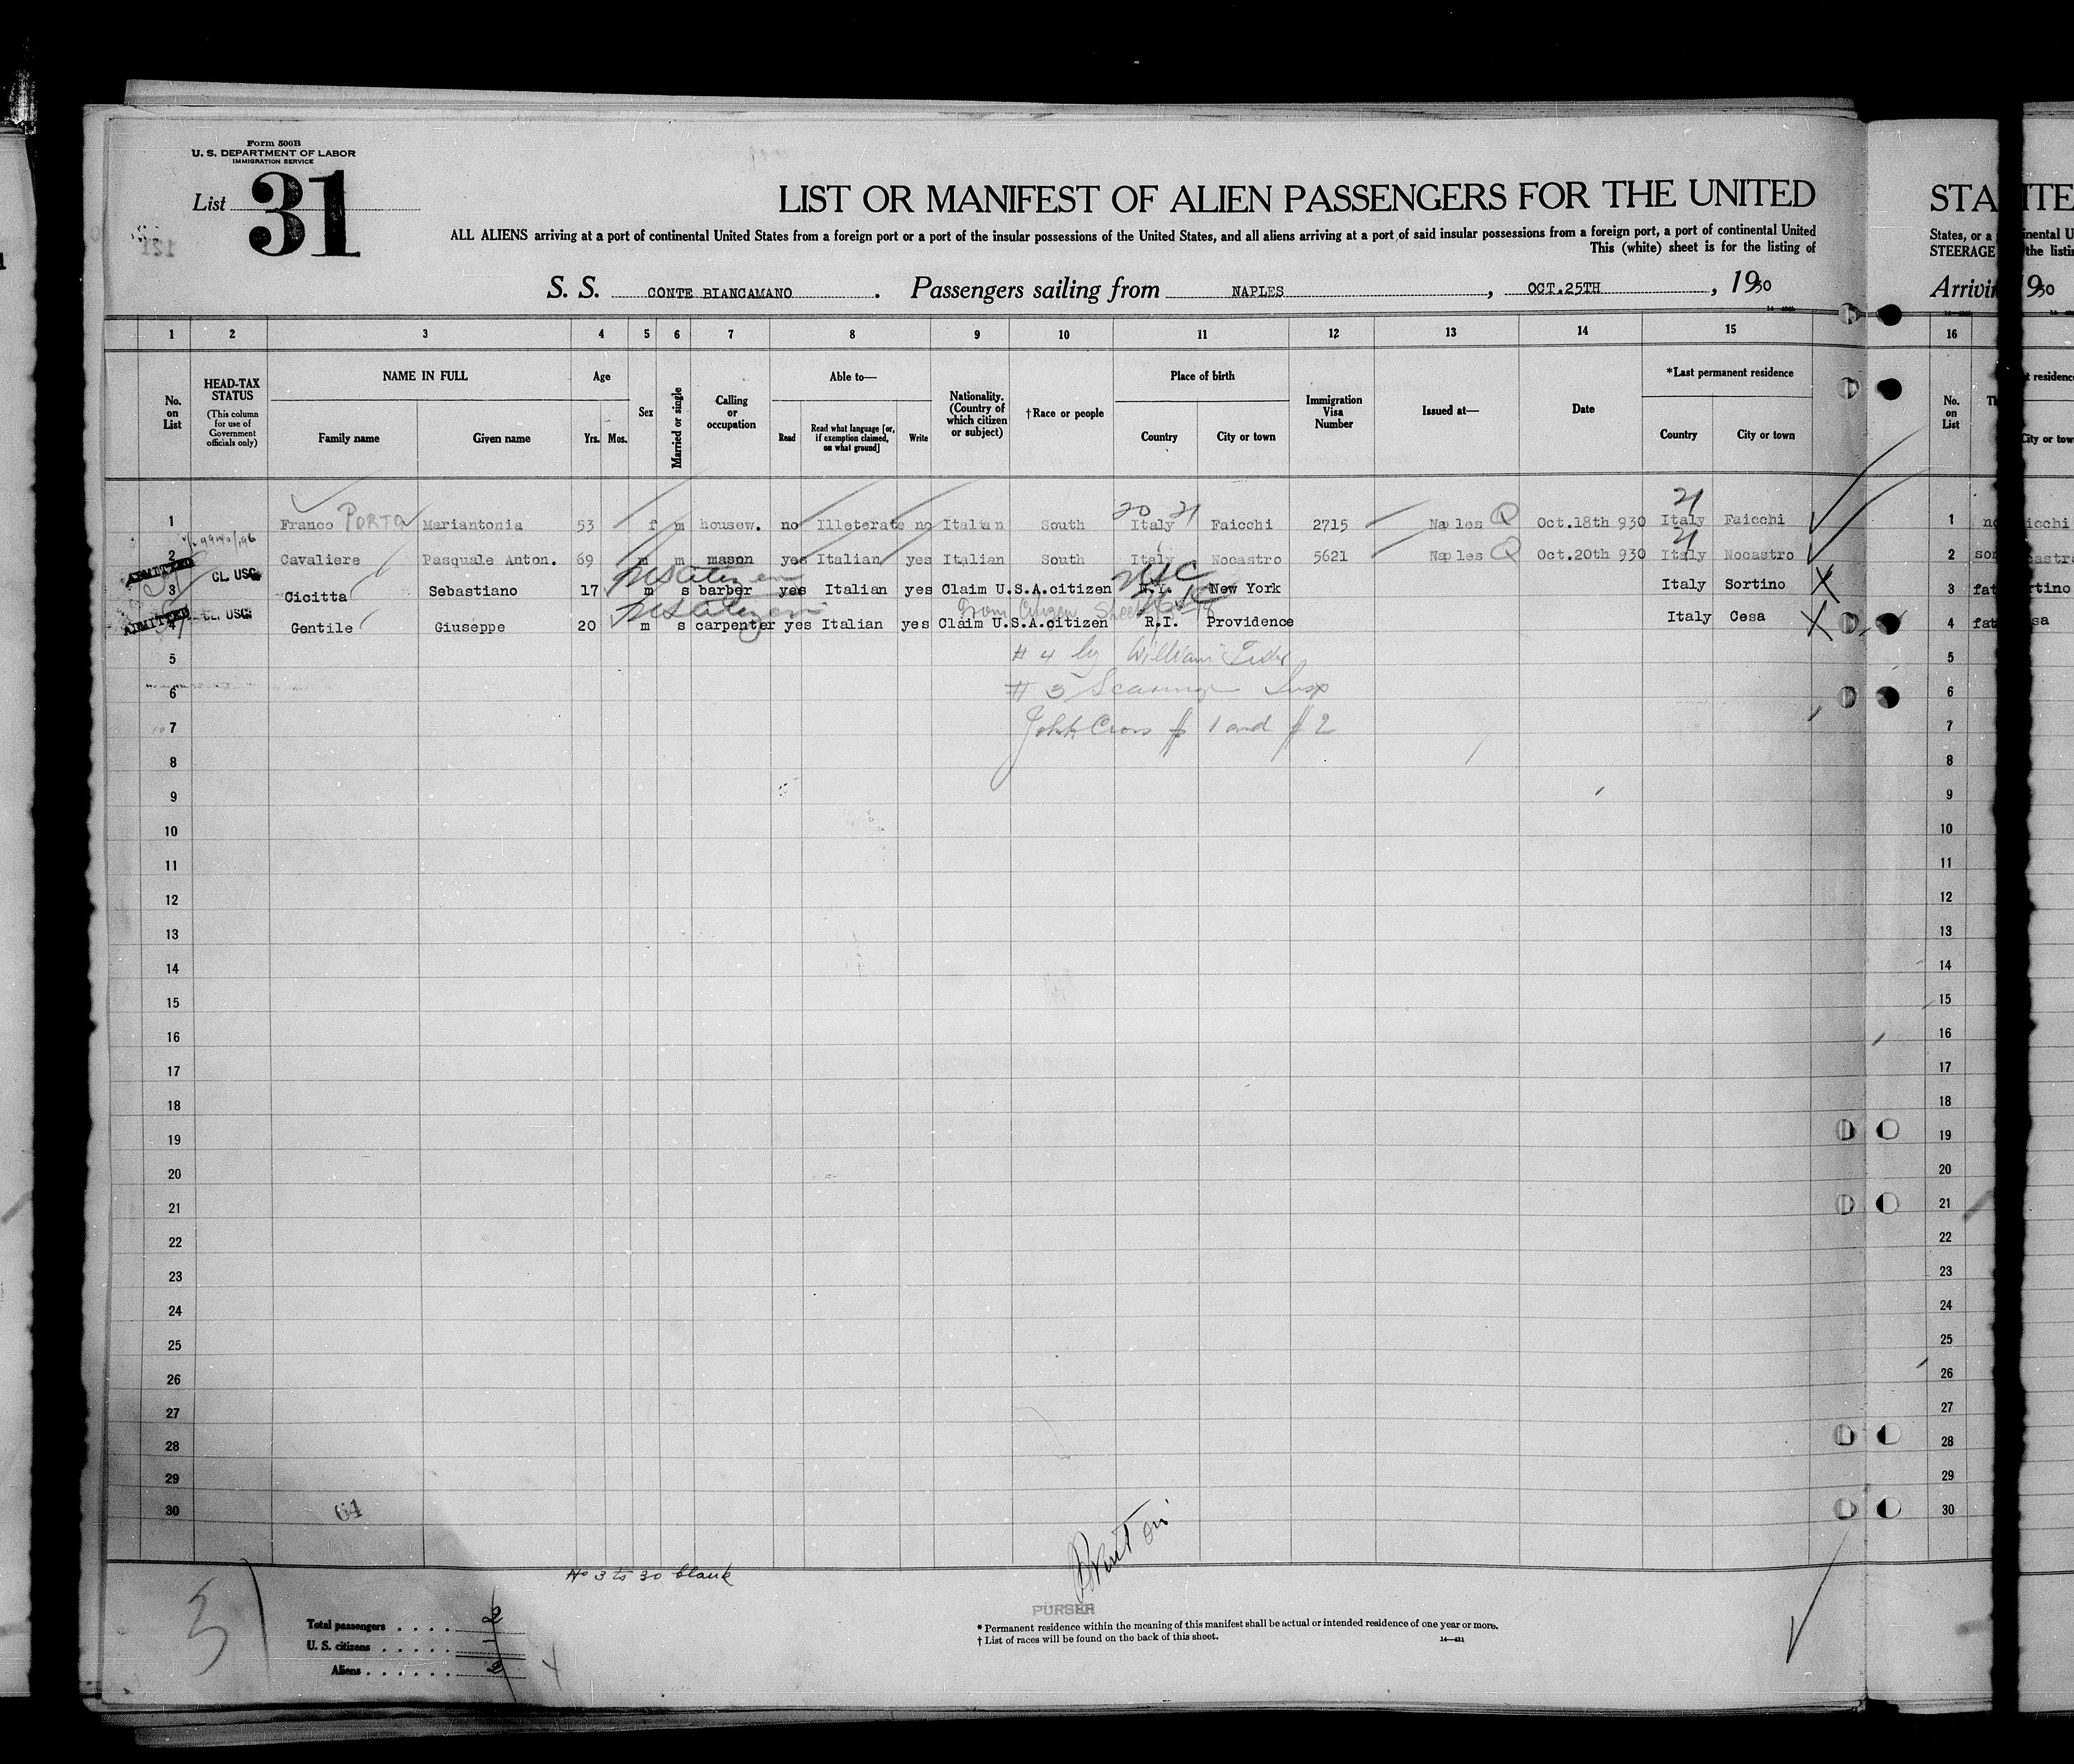 Form 500B
U. S. DEPARTMENT OF LABOR
IMMIGRATION SERVICE
List 31
LIST OR MANIFEST OF ALIEN PASSENGERS FOR THE UNITED
ALL ALIENS arriving at a port of continental United States from a foreign port or a port of the insular possessions of the United States, and all aliens arriving at a port of said insular possessions from a foreign port, a port of continental United
This (white) sheet is for the listing of
S. S. CONTE BIANCAMANO. Passengers sailing from NAPLES, OCT.25TH, 1930
1 2 3 4 5 6 7 8 9 10 11 12 13 14 15
No. on List
HEAD-TAX STATUS (This column for use of Government officials only)
NAME IN FULL Family name Given name
Age Yrs. Mos.
Sex
Married or single
Calling or occupation
Able to— Read Read what language [or, if exemption claimed, on what ground] Write
Nationality. (Country of which citizen or subject)
†Race or people
Place of birth Country City or town
Immigration Visa Number
Issued at—
Date
*Last permanent residence Country City or town
20 21 21
1 Franco PORTO Mariantonia 53 f m housew. no Illeterate no Italian South Italy Faicchi 2715 Naples Q Oct.18th 930 Italy Faicchi
21
2 Cavaliere Pasquale Anton. 69 m m mason yes Italian yes Italian South Italy Nocastro 5621 Naples Q Oct.20th 930 Italy Nocastro
ADMITTED CL. USC. US citizen USC
3 Cicitta Sebastiano 17 m s barber yes Italian yes Claim U.S.A.citizen N.Y. New York Italy Sortino X
ADMITTED CL. USC. US citizen USC
from Citizen Sheet
4 Gentile Giuseppe 20 m s carpenter yes Italian yes Claim U.S.A.citizen R.I. Providence Italy Cesa X
5 # 4 by William
6 # 3 Insp
7 John Cross # 1 and # 2
8
9
10
11
12
13
14
15
16
17
18
19
20
21
22
23
24
25
26
27
28
29
30
64
No 3 to 30 blank
Total passengers
U. S. citizens
Aliens
4
PURSER
* Permanent residence within the meaning of this manifest shall be actual or intended residence of one year or more.
† List of races will be found on the back of this sheet.
14—431
STA
States, or a
STEERAGE
Arrivin
16
No. on List
1 no
2 son
3 fat
4 fat
5
6
7
8
9
10
11
12
13
14
15
16
17
18
19
20
21
22
23
24
25
26
27
28
29
30